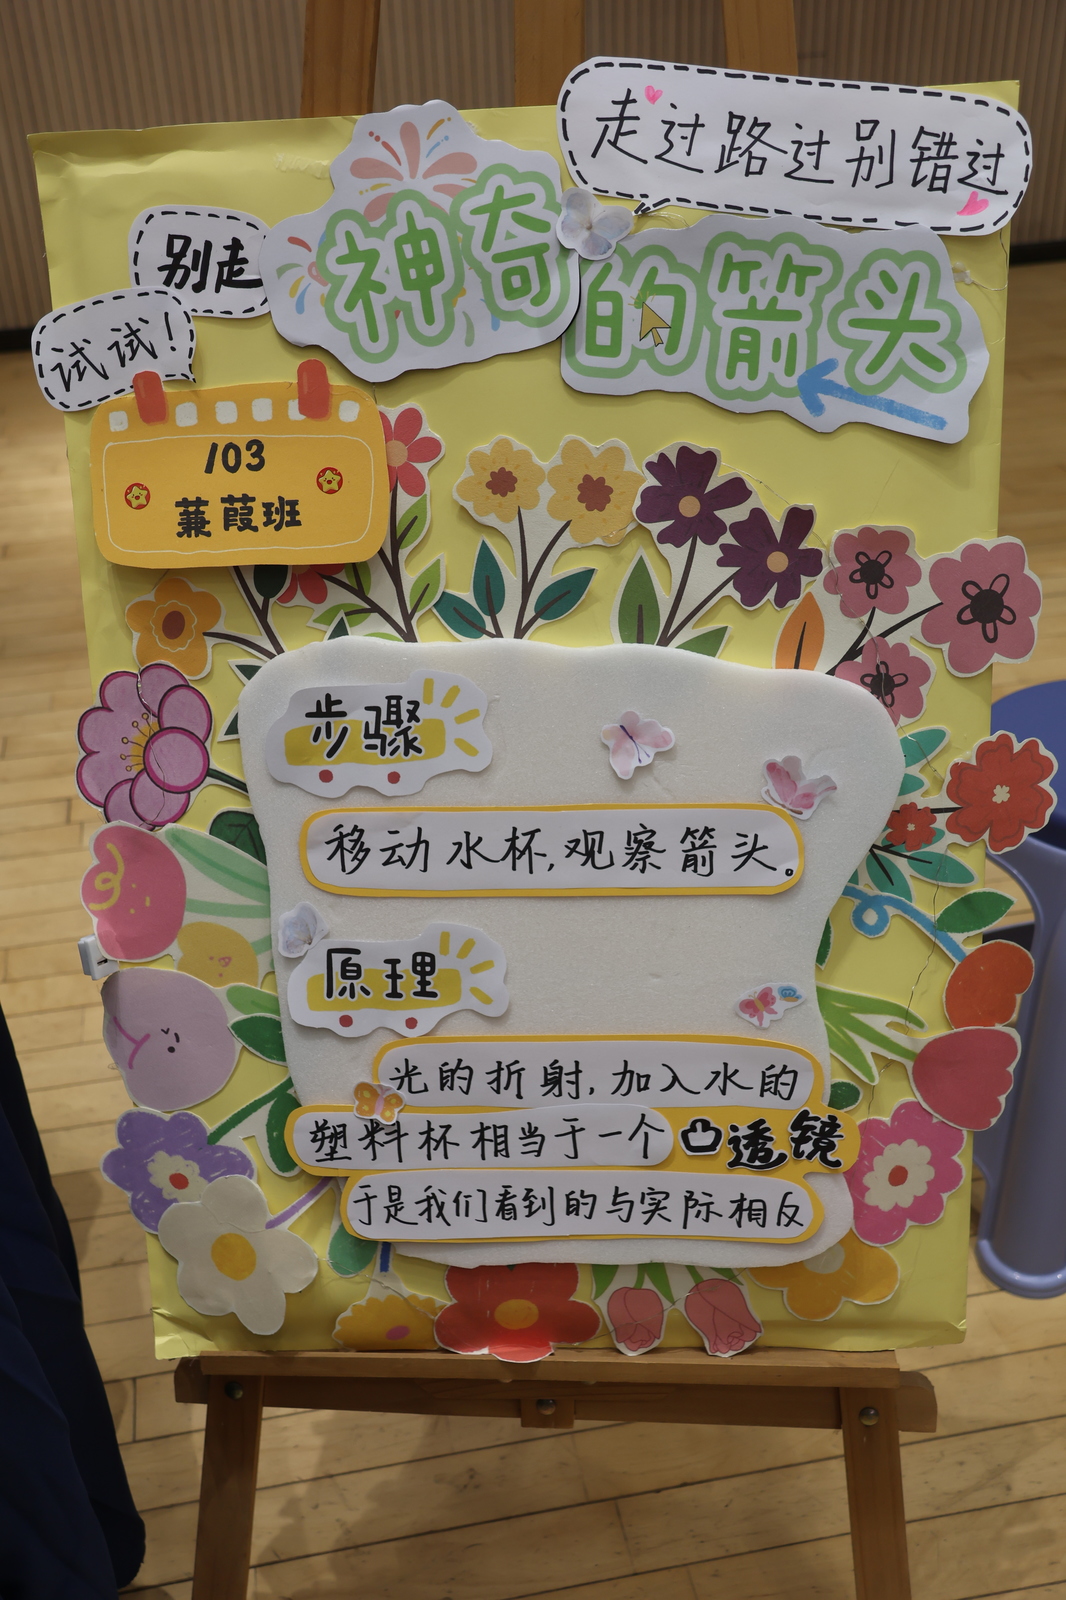 走过路过别错过
神奇的箭头
别走
试试！
103
蒹葭班
步骤
移动水杯，观察箭头。
原理
光的折射，加入水的
塑料杯相当于一个凸透镜
于是我们看到的与实际相反